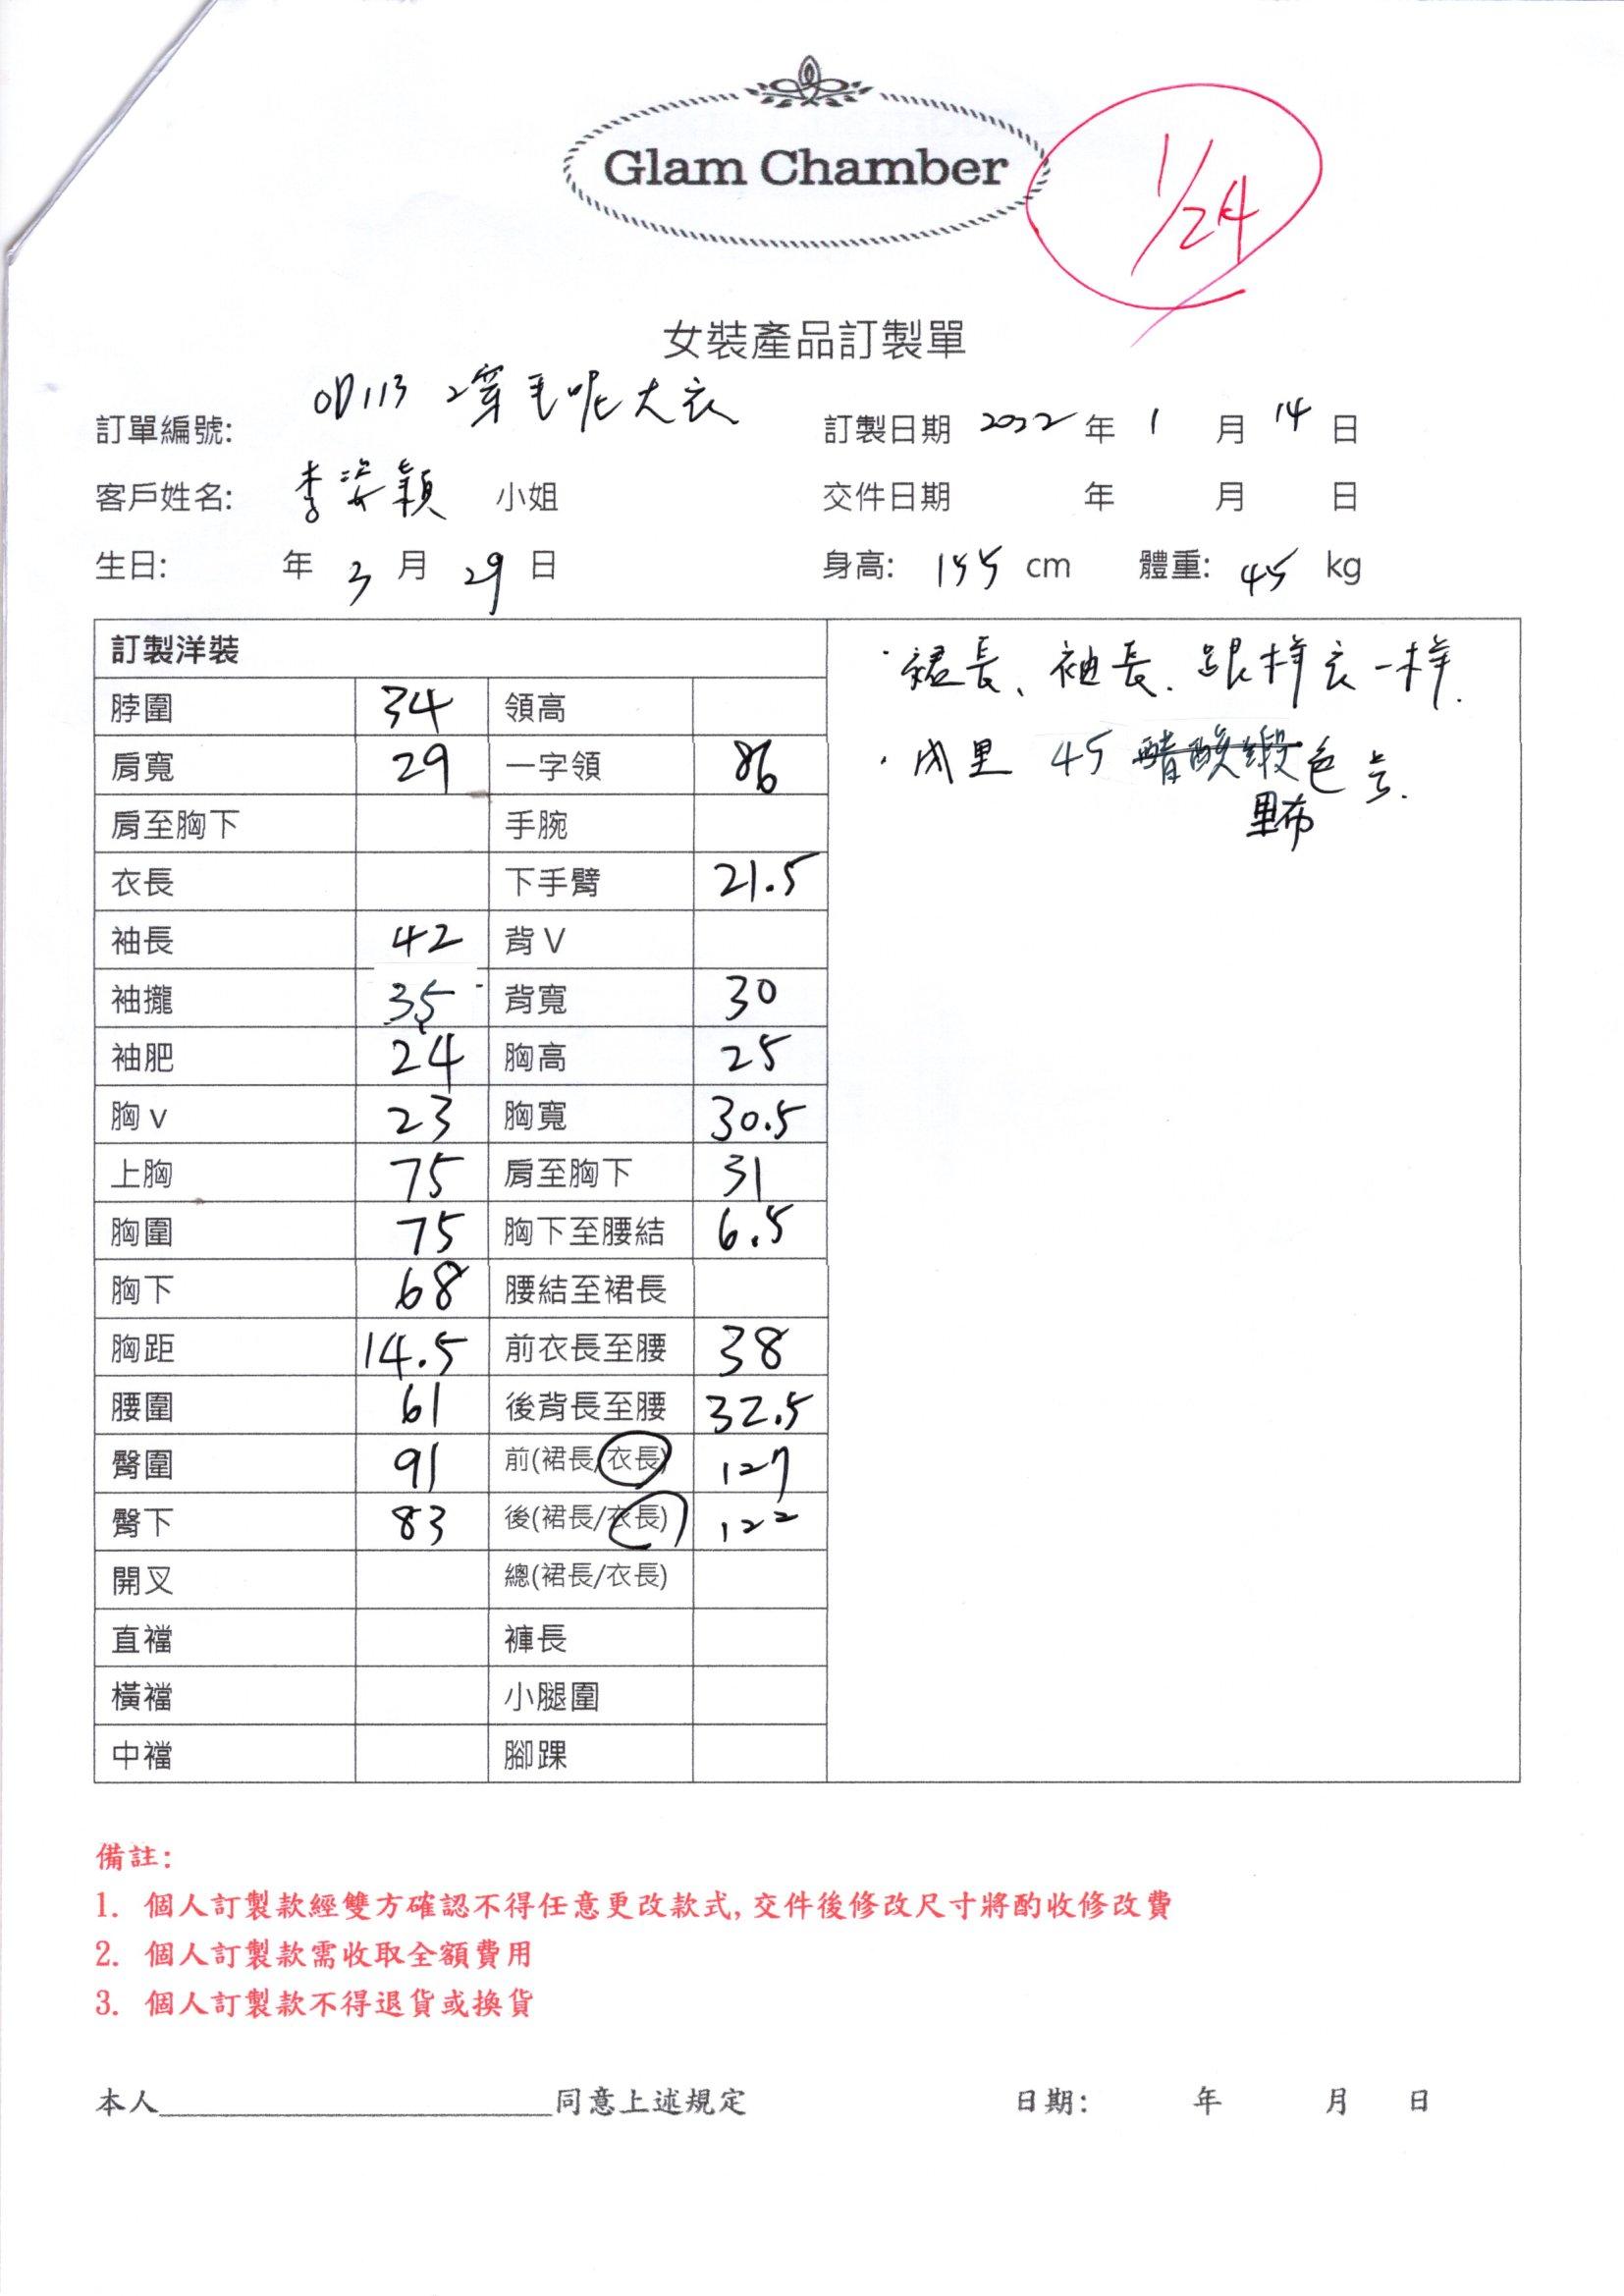 Glam Chamber
1/24
女裝產品訂製單
訂單編號: OD113 2穿毛呢大衣 訂製日期 2022 年 1 月 14 日
客戶姓名: 李姿穎 小姐 交件日期 年 月 日
生日: 年 3 月 29 日 身高: 155 cm 體重: 45 kg
訂製洋裝
脖圍 34 領高
肩寬 29 一字領 86
肩至胸下 手腕
衣長 下手臂 21.5
袖長 42 背 V
袖攏 35 背寬 30
袖肥 24 胸高 25
胸 v 23 胸寬 30.5
上胸 75 肩至胸下 31
胸圍 75 胸下至腰結 6.5
胸下 68 腰結至裙長
胸距 14.5 前衣長至腰 38
腰圍 61 後背長至腰 32.5
臀圍 91 前(裙長/衣長) 127
臀下 83 後(裙長/衣長) 122
開叉 總(裙長/衣長)
直襠 褲長
橫襠 小腿圍
中襠 腳踝
·裙長、袖長.跟样衣一样.
·内里 45 醋酸緞色号.
里布
備註:
1. 個人訂製款經雙方確認不得任意更改款式,交件後修改尺寸將酌收修改費
2. 個人訂製款需收取全額費用
3. 個人訂製款不得退貨或換貨
本人 同意上述規定 日期: 年 月 日